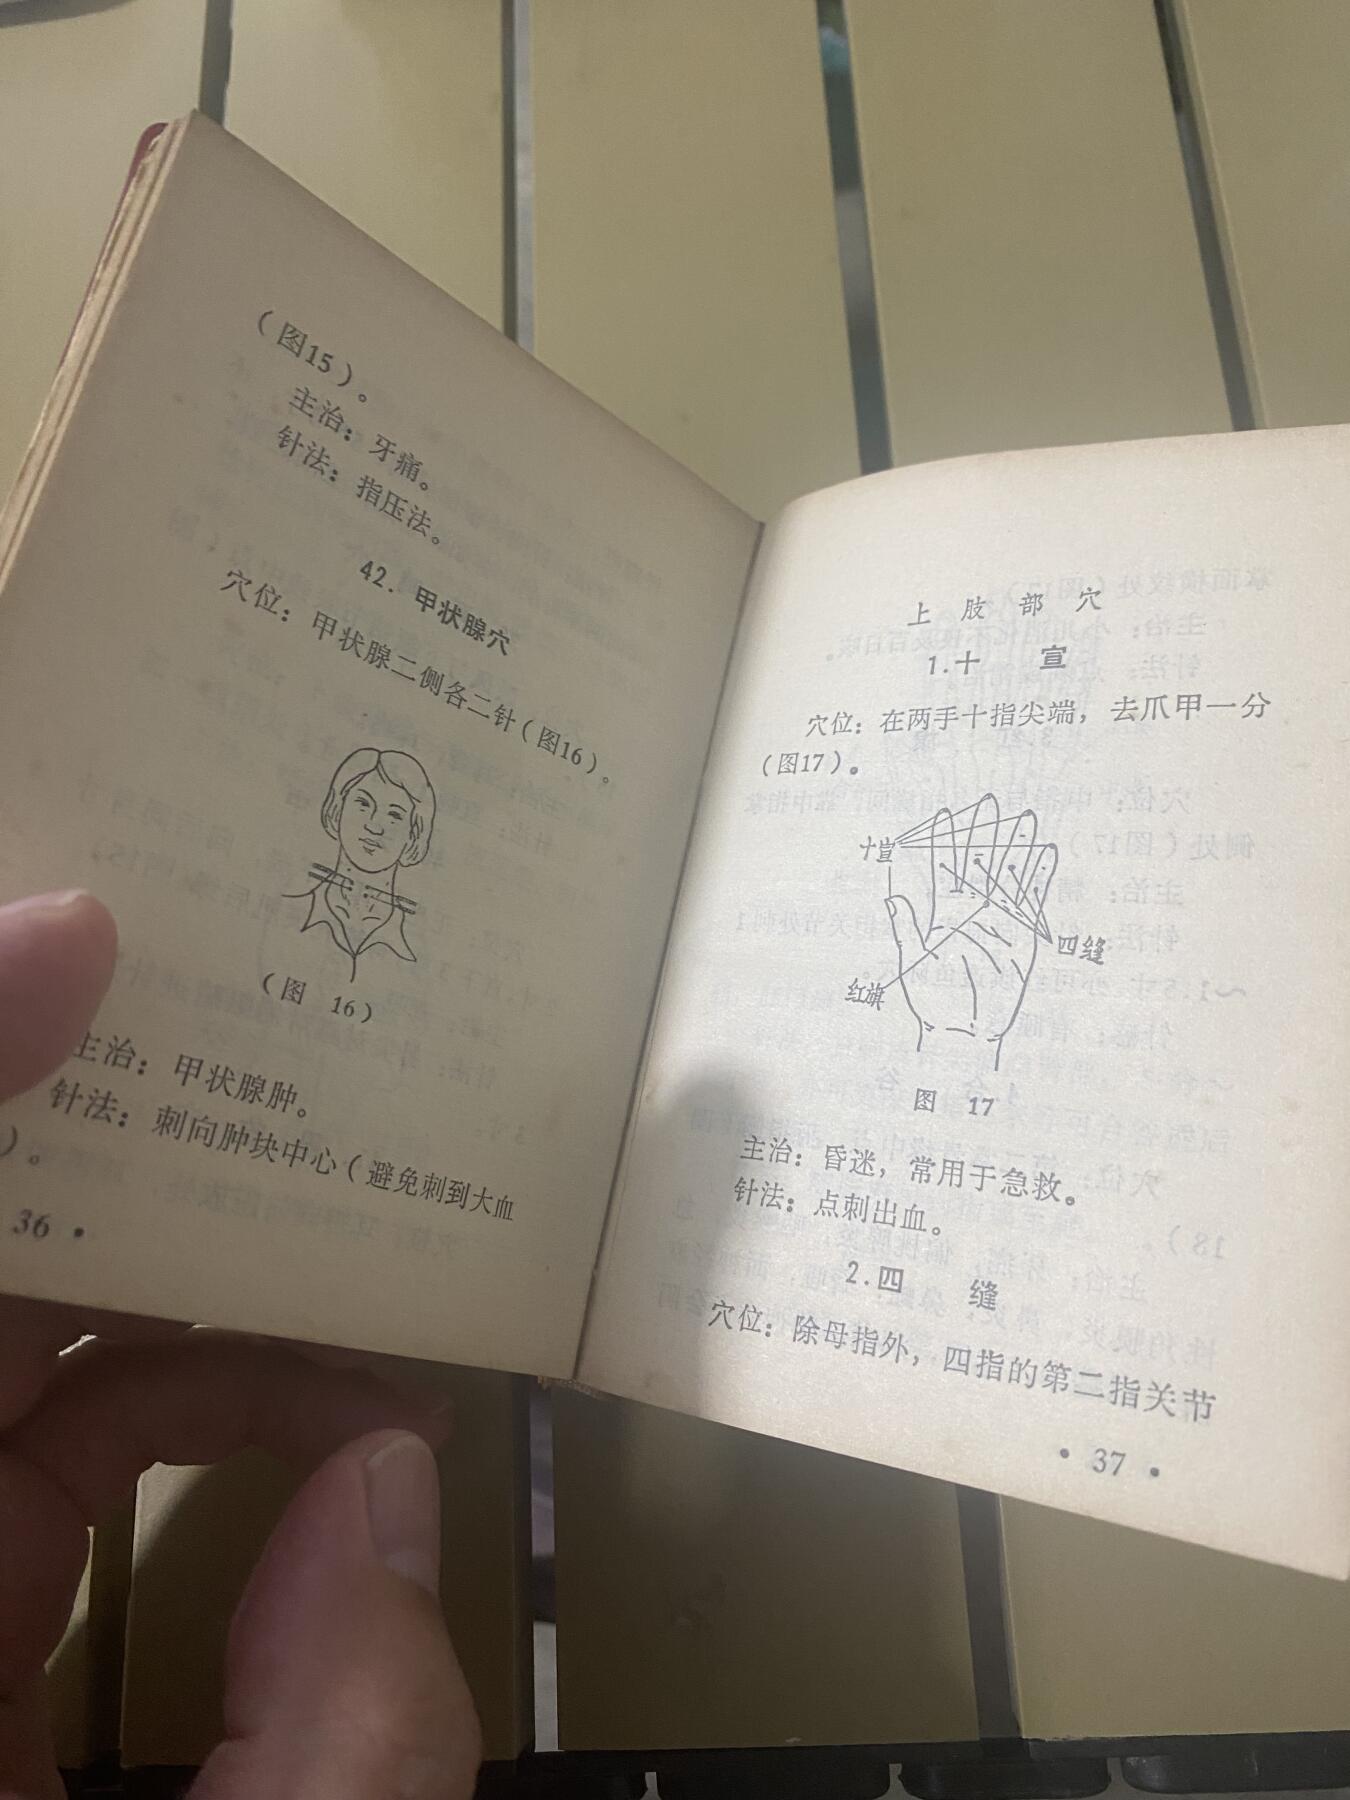 (图15)。
主治：牙痛。
针法：指压法。
42. 甲状腺穴
穴位：甲状腺二侧各二针(图16)。
(图 16)
主治：甲状腺肿。
针法：刺向肿块中心(避免刺到大血
)。
36 •
上 肢 部 穴
1.十 宣
穴位：在两手十指尖端，去爪甲一分
(图17)。
十宣
四缝
红旗
图 17
主治：昏迷，常用于急救。
针法：点刺出血。
2.四 缝
穴位：除母指外，四指的第二指关节
• 37 •